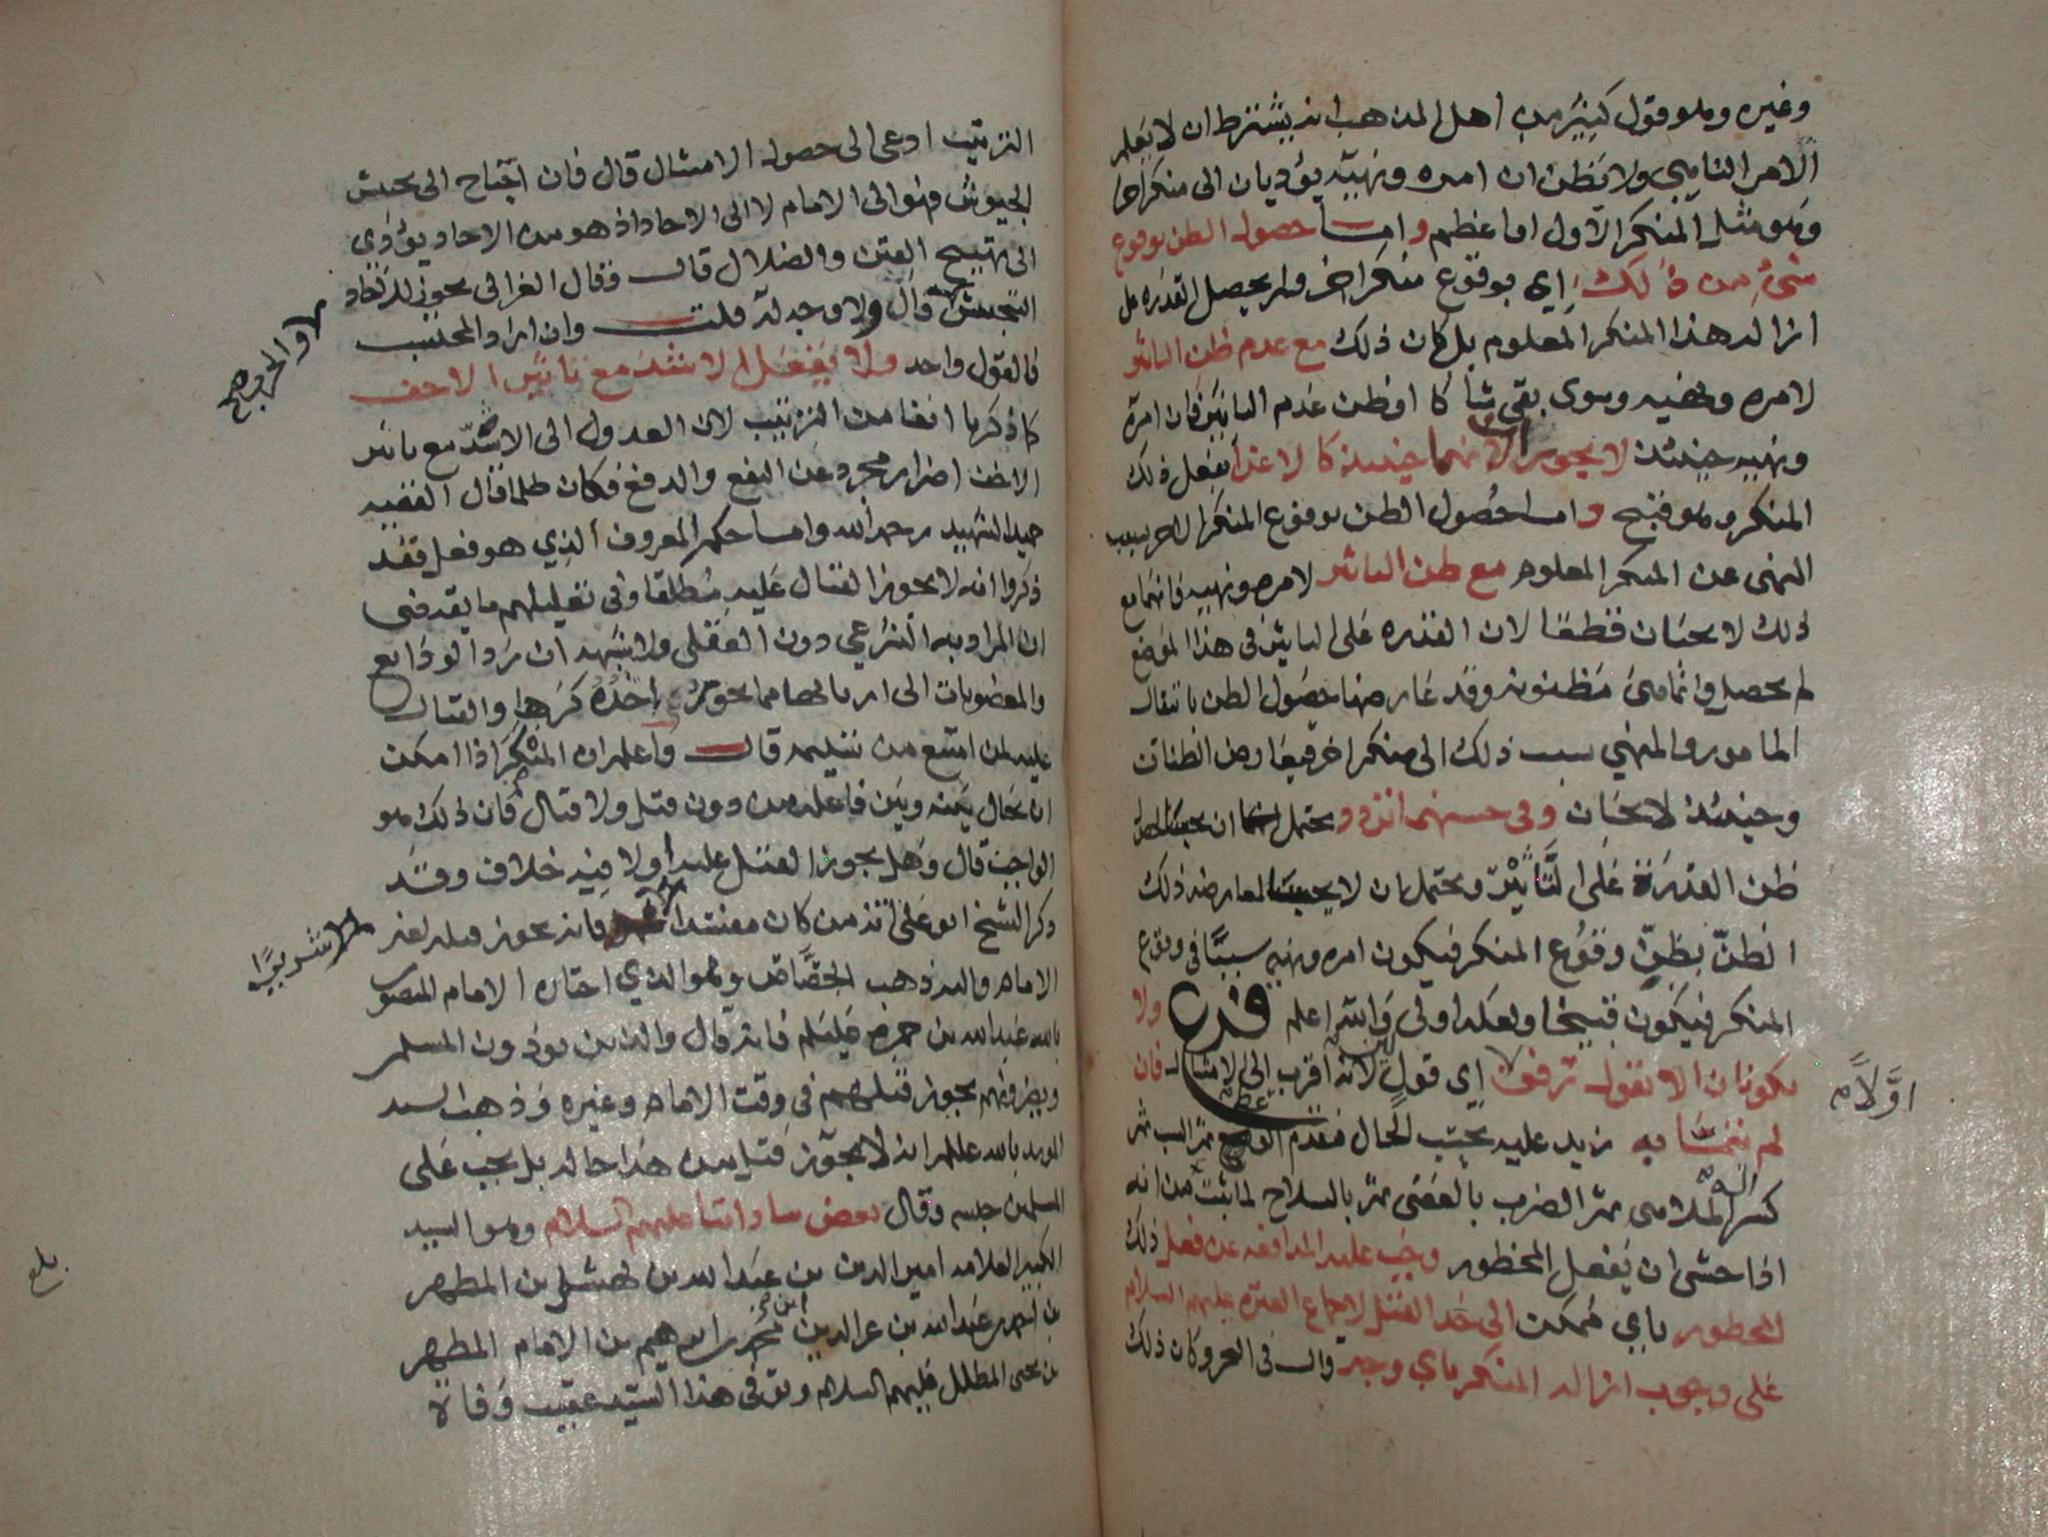 وغيره وهو قول كثير من اهل المذهب انه يشترط ان لا يعلم
الامر الناهي ولا يظن ان امره ونهيه يؤديان الى منكر اخر
وهو مثل المنكر الاول او اعظم واما حصول الظن بوقوع
شيء من ذلك اي بوقوع منكر اخر ولم يحصل القدره على
ازالة هذا المنكر المعلوم بل كان ذلك مع عدم ظن التاثير
لامره ونهيه وسوى بقي شاكا او ظن عدم التاثير فان امره
ونهيه حينئذ لا يجوز لانهما حينئذ كالاغراء بفعل ذلك
المنكر وهو قبيح واما حصول الظن بوقوع المنكر الاخر بسبب
النهي عن المنكر المعلوم مع ظن التاثير لامره ونهيه فانهما مع
ذلك لا يحسنان قطعا لان القدره على التاثير في هذا الموضع
لم يحصل وانما هي مظنونه وقد عارضها حصول الظن بانتقال
المامور والمنهي بسبب ذلك الى منكر اخر فيتعارض الظنان
وحينئذ لا يجبان وفي حسنهما تردد يحتمل ان يحسنا لحصول
ظن القدرة على التاثير ويحتمل ان لا يحسنا لمعارضه ذلك
الظن بظن وقوع المنكر فيكون امره ونهيه سببا في وقوع
المنكر فيكون قبيحا ولعله اولى والله اعلم فرع ولا
يكونان الا بقول رفق اي قول لين لانه اقرب الى الامتثال فان
اولا م
لم يمتثلا به زيد عليه بحسب الحال فيقدم الوعظ ثم السب ثم
كسر الملاهي ثم الضرب بالعصى ثم بالسلاح لما ثبت من انه
اذا خشي ان يفعل المحظور وجب عليه المدافعه عن فعل ذلك
المحظور باي ممكن الى حد القتل لاجماع العترة عليهم السلام
على وجوب ازالة المنكر باي وجه قال في البحر وكان ذلك
الترتيب ادعى الى حصول الامتثال قال فان احتاج الى تجييش
الجيوش فهو الى الامام لا الى الاحاد اذ هو من الاحاد يؤدي
الى تهييج الفتن والضلال قال وقال الغزالي يجوز للاحاد
التجييش قال ولا وجه له قلت وان اراد المحتسب
لا والخروج صح
فالقول واحد ولا يفعل الاشد مع تاثير الاخف
كما ذكرنا انفا من الترتيب لان العدول الى الاشد مع تاثير
الاخف اضرار مجرد عن النفع والدفع فكان ظلما قال الفقيه
حميد الشهيد رحمه الله واما حكم المعروف الذي هو فعل فقد
ذكروا انه لا يجوز القتال عليه مطلقا وفي تعليلهم ما يقتضي
ان المراد به الشرعي دون العقلي ولا شبهة ان رد الودايع
والمغصوبات الى اربابها مما يجوز اخذه كرها والقتال
عليه لمن امتنع من تسليمه قال واعلم ان المنكر اذا امكن
ان يحال بينه وبين فاعله من دون قتل ولا قتال فان ذلك هو
الواجب قال وهل يجوز القتل عليه اولا فيه خلاف وقد
ذكر الشيخ ابو علي انه من كان مفسدا فانه يجوز قتله لغير
لا شريبا
الامام واليه ذهب الجصاص وهو الذي اختاره الامام المنصور
بالله عبدالله بن حمزه عليلم فانه قال والذين يؤذون المسلمين
ويضرونهم يجوز قتلهم في وقت الامام وغيره وذهب السيد
المويد بالله عليلم انه لا يجوز قتل من هذا حاله بل يجب على
المسلمين حبسه وقال بعض ساداتنا عليهم السلام وهو السيد
الكبير العلامه امير الدين بن عبدالله بن نهشل بن المطهر
بن احمد بن عبدالله بن عز الدين بن محمد بن ابراهيم بن الامام المطهر
بن يحيى المظلل عليهم السلام وتوفي هذا السيد عقيب وفاة
بلغ